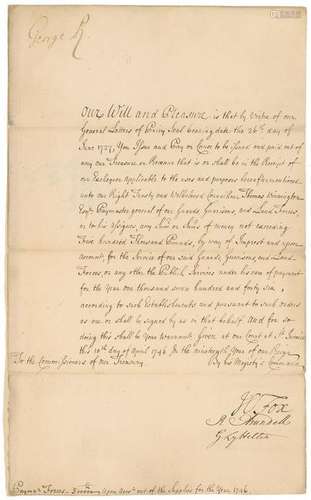 George R.
Our Will and Pleasure is that by Virtue of our
General Letters of Privy Seal bearing date the 26th day of
June 1727, You Issue and Pay or Cause to be Issued and paid out of
any our Treasure or Revenue that is or shall be in the Receipt of
our Exchequer applicable to the uses and purposes hereaftermentioned
unto our Right Trusty and Wellbeloved Councillor Thomas Winnington
Esqr. Paymaster general of our Guards Garrisons, and Land Forces,
or to his Assignes, any Sum or Sums of money not exceeding
Five hundred Thousand Pounds, by way of Imprest and upon
Account, for the Service of our said Guards Garrisons and Land
Forces, or any other the Publick Services under his care of payment
for the Year One thousand seven hundred and forty six,
according to such Establishments and pursuant to such orders
as are or shall be signed by us in that behalf. And for so
doing this shall be Your Warrant. Given at our Court at St. James's
this 10th day of April 1746 In the nineteenth Year of our Reign
To the Commissioners of our Treasury. By his Majestys Command
H Fox
R Arundell
G Lyttelton
Paymr. Forces upon Accot. out of the Supplies for the Year 1746